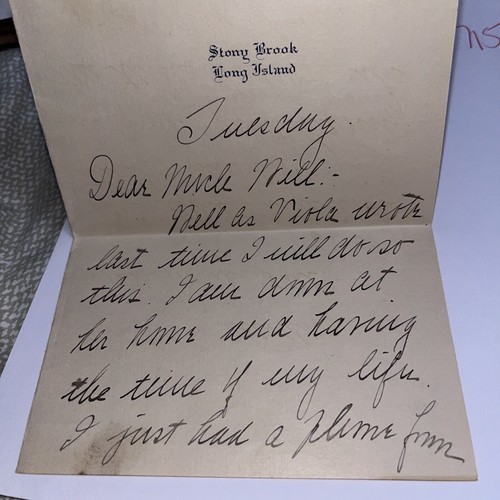 Stony Brook
Long Island
Tuesday.
Dear Uncle Will:-
Well as Viola wrote
last time I will do so
this. I am down at
her home and having
the time of my life.
I just had a phone from